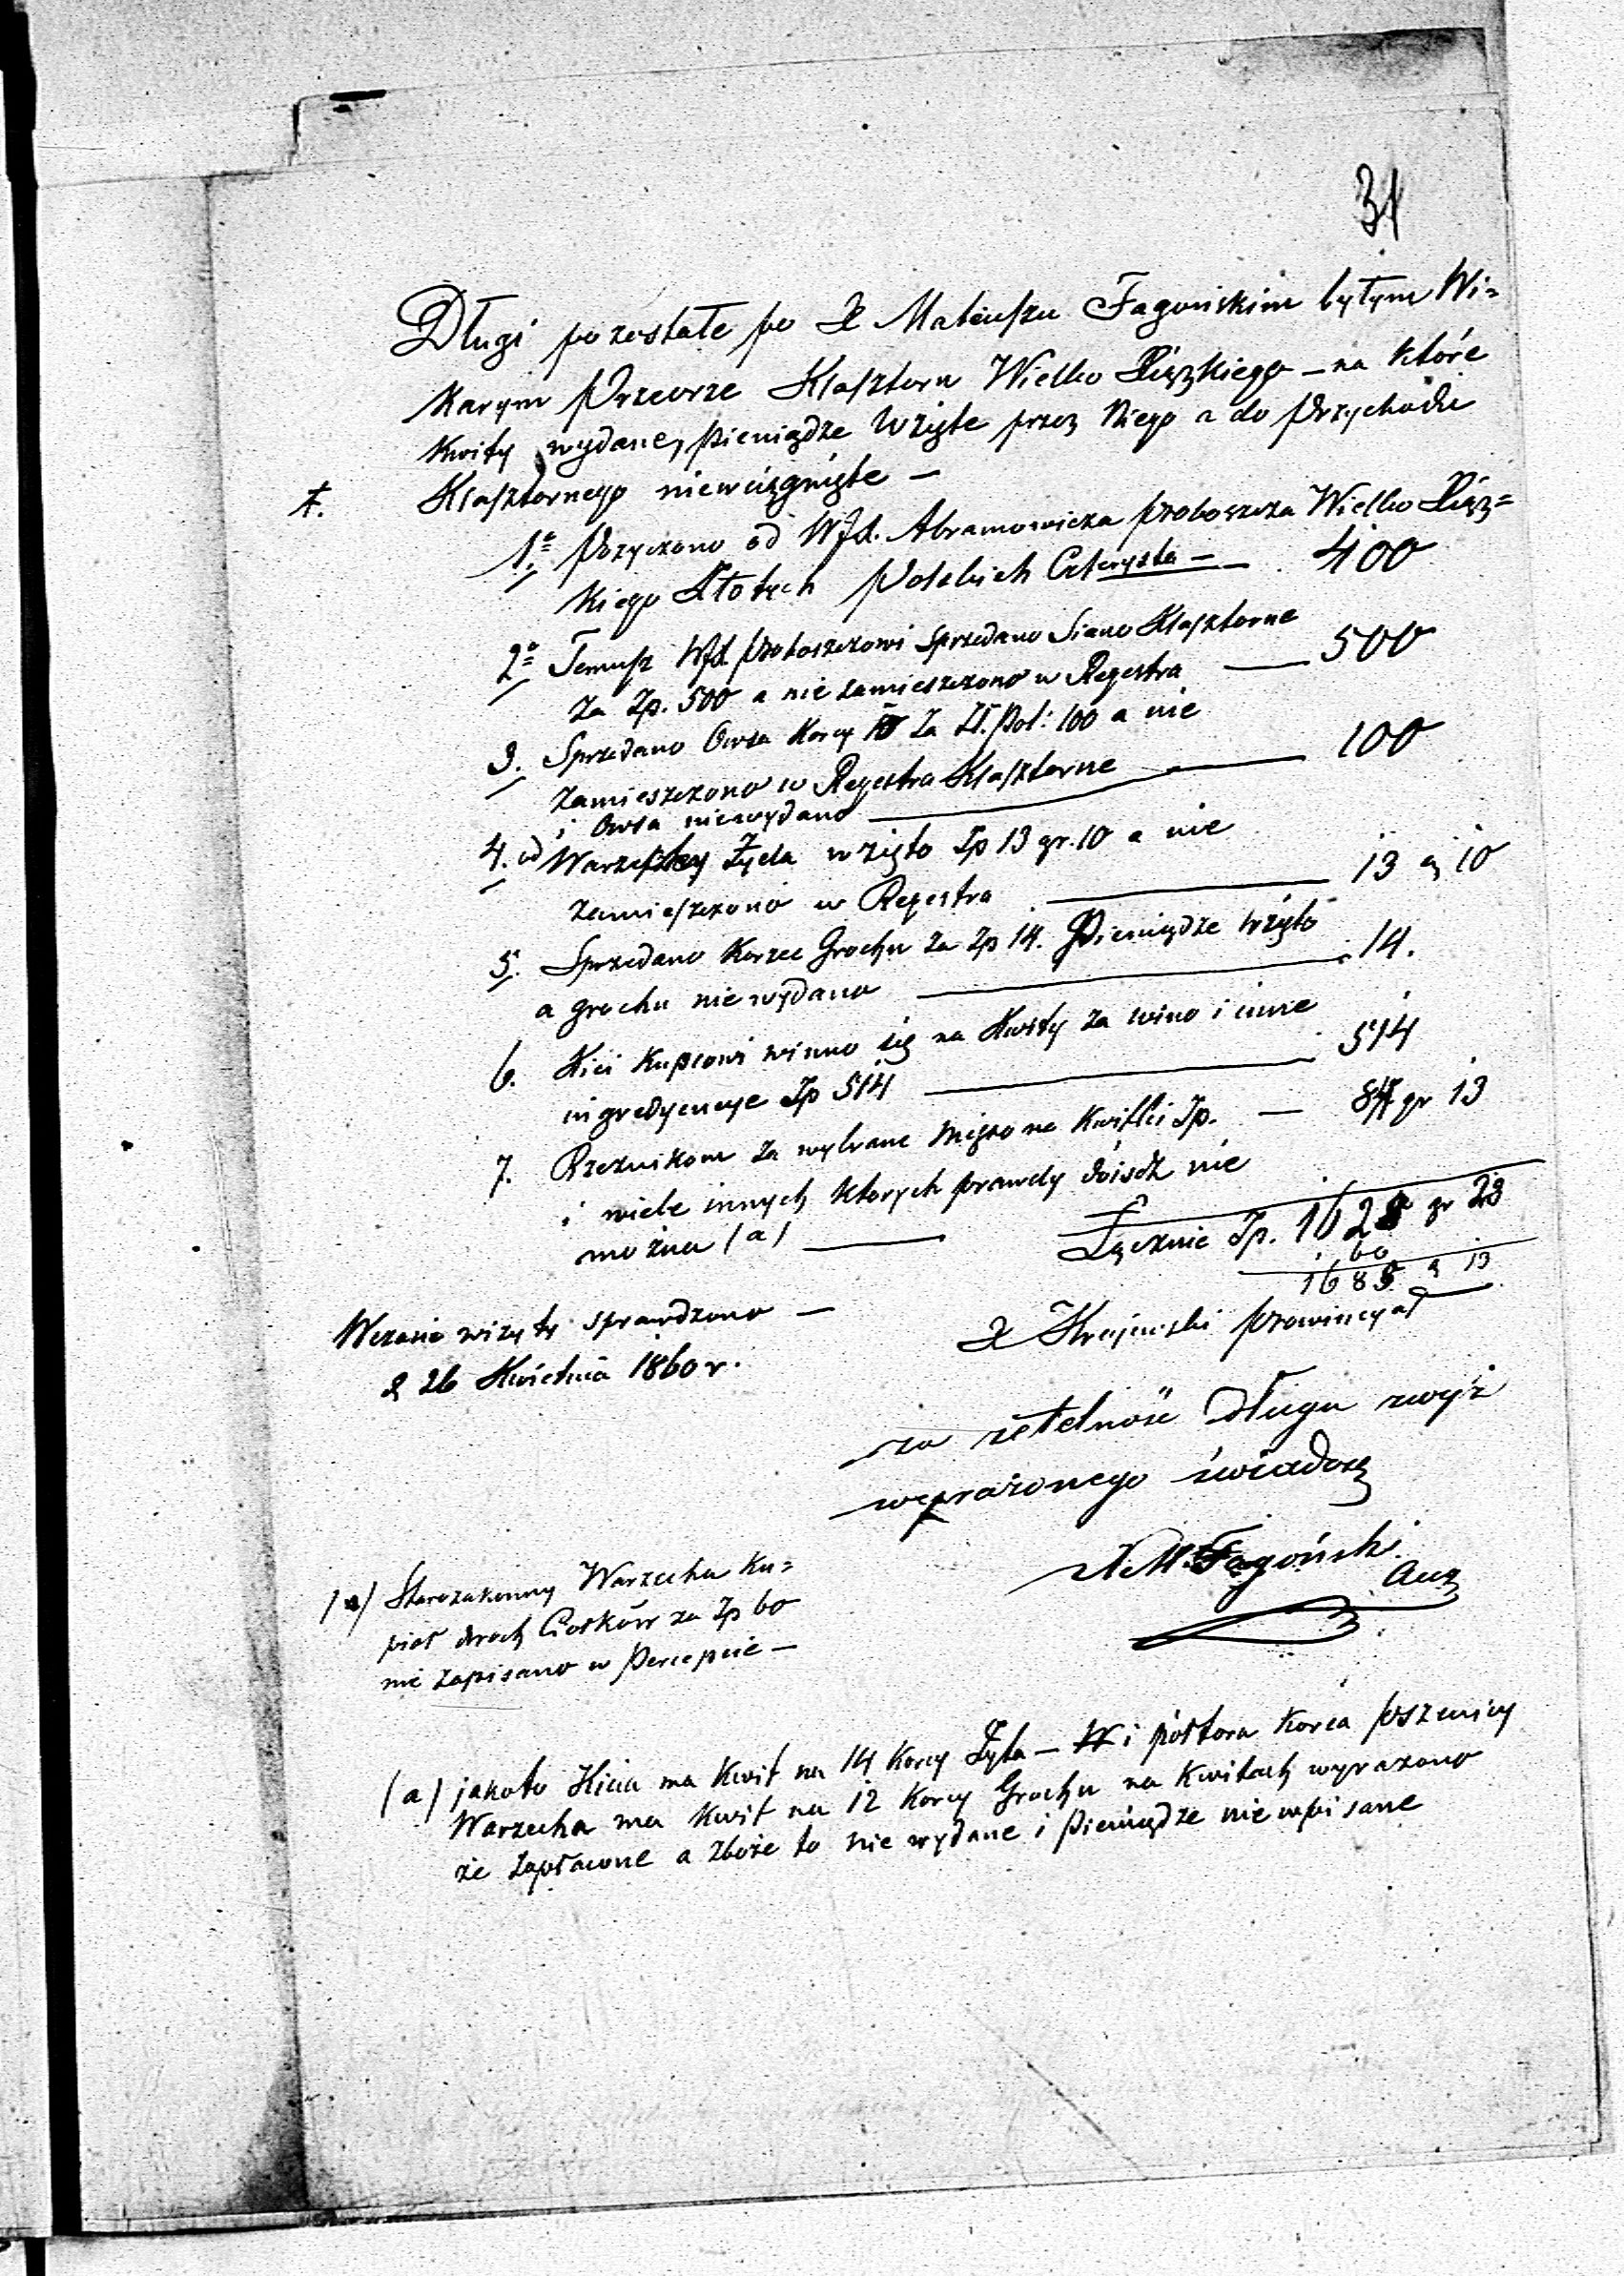 31
Długi pozostałe po X Mateuszu Fagońskim byłym Wi=
karym Przeorze Klasztoru Wielko Ksiązkiego – na które
kwity wydane, pieniądze wzięte przez Niego a do Przychodu
Klasztornego niewciągnięte –
1º Pożyczono od WJX. Abramowicza proboszcza Wielko Ksiąz=
kiego Złotych Polskich Czterysta – 400
2º Temusz WJX proboszczowi Sprzedano Siano Klasztorne
za Zp. 500 a nie zamieszczono w Regestra — 500
3. Sprzedano Owsa Korcy 10 za Zł. Pol: 100 a nie
zamieszczono w Regestra Klasztorne — 100
i Owsa niewydano
4. od Warzechy Żyda wzięto Zp 13 gr. 10 a nie
zamieszczono w Regestra — 13 g 10
5. Sprzedano Korzec Grochu za Zp 14. Pieniądze wzięto
a grochu nie wydano — 14.
6. Kici Kupcowi winno się na Kwity za wino i inne
ingredyencye Zp 514 — 514
7. Rzeznikom za wybrane mięso na Kwitki Zp. — 84 gr 13
i wiele innych których prawdy doiśdź nie
można (a) —
Łącznie Zp. 1625 gr 23
60
1685 g 13
W czasie wizyty sprawdzono —
d 26 Kwietnia 1860 r.
X Krajewski prowincyał
za rzetelność Długu zwyż
wyrażonego świadczę
X. M. Fagoński
Aug
Starozakonny Warzecha Ku=
pioł dwoch Ciołków za Zp 60
nie zapisano w Percepcie —
(a) jakoto Kicia ma Kwit na 14 Korcy Żyta – i półtora Korca pszenicy
Warzecha ma Kwit na 12 Korcy Grochu na Kwitach wyrazono
że zapłacone a zboże to nie wydane i pieniądze nie wpisane